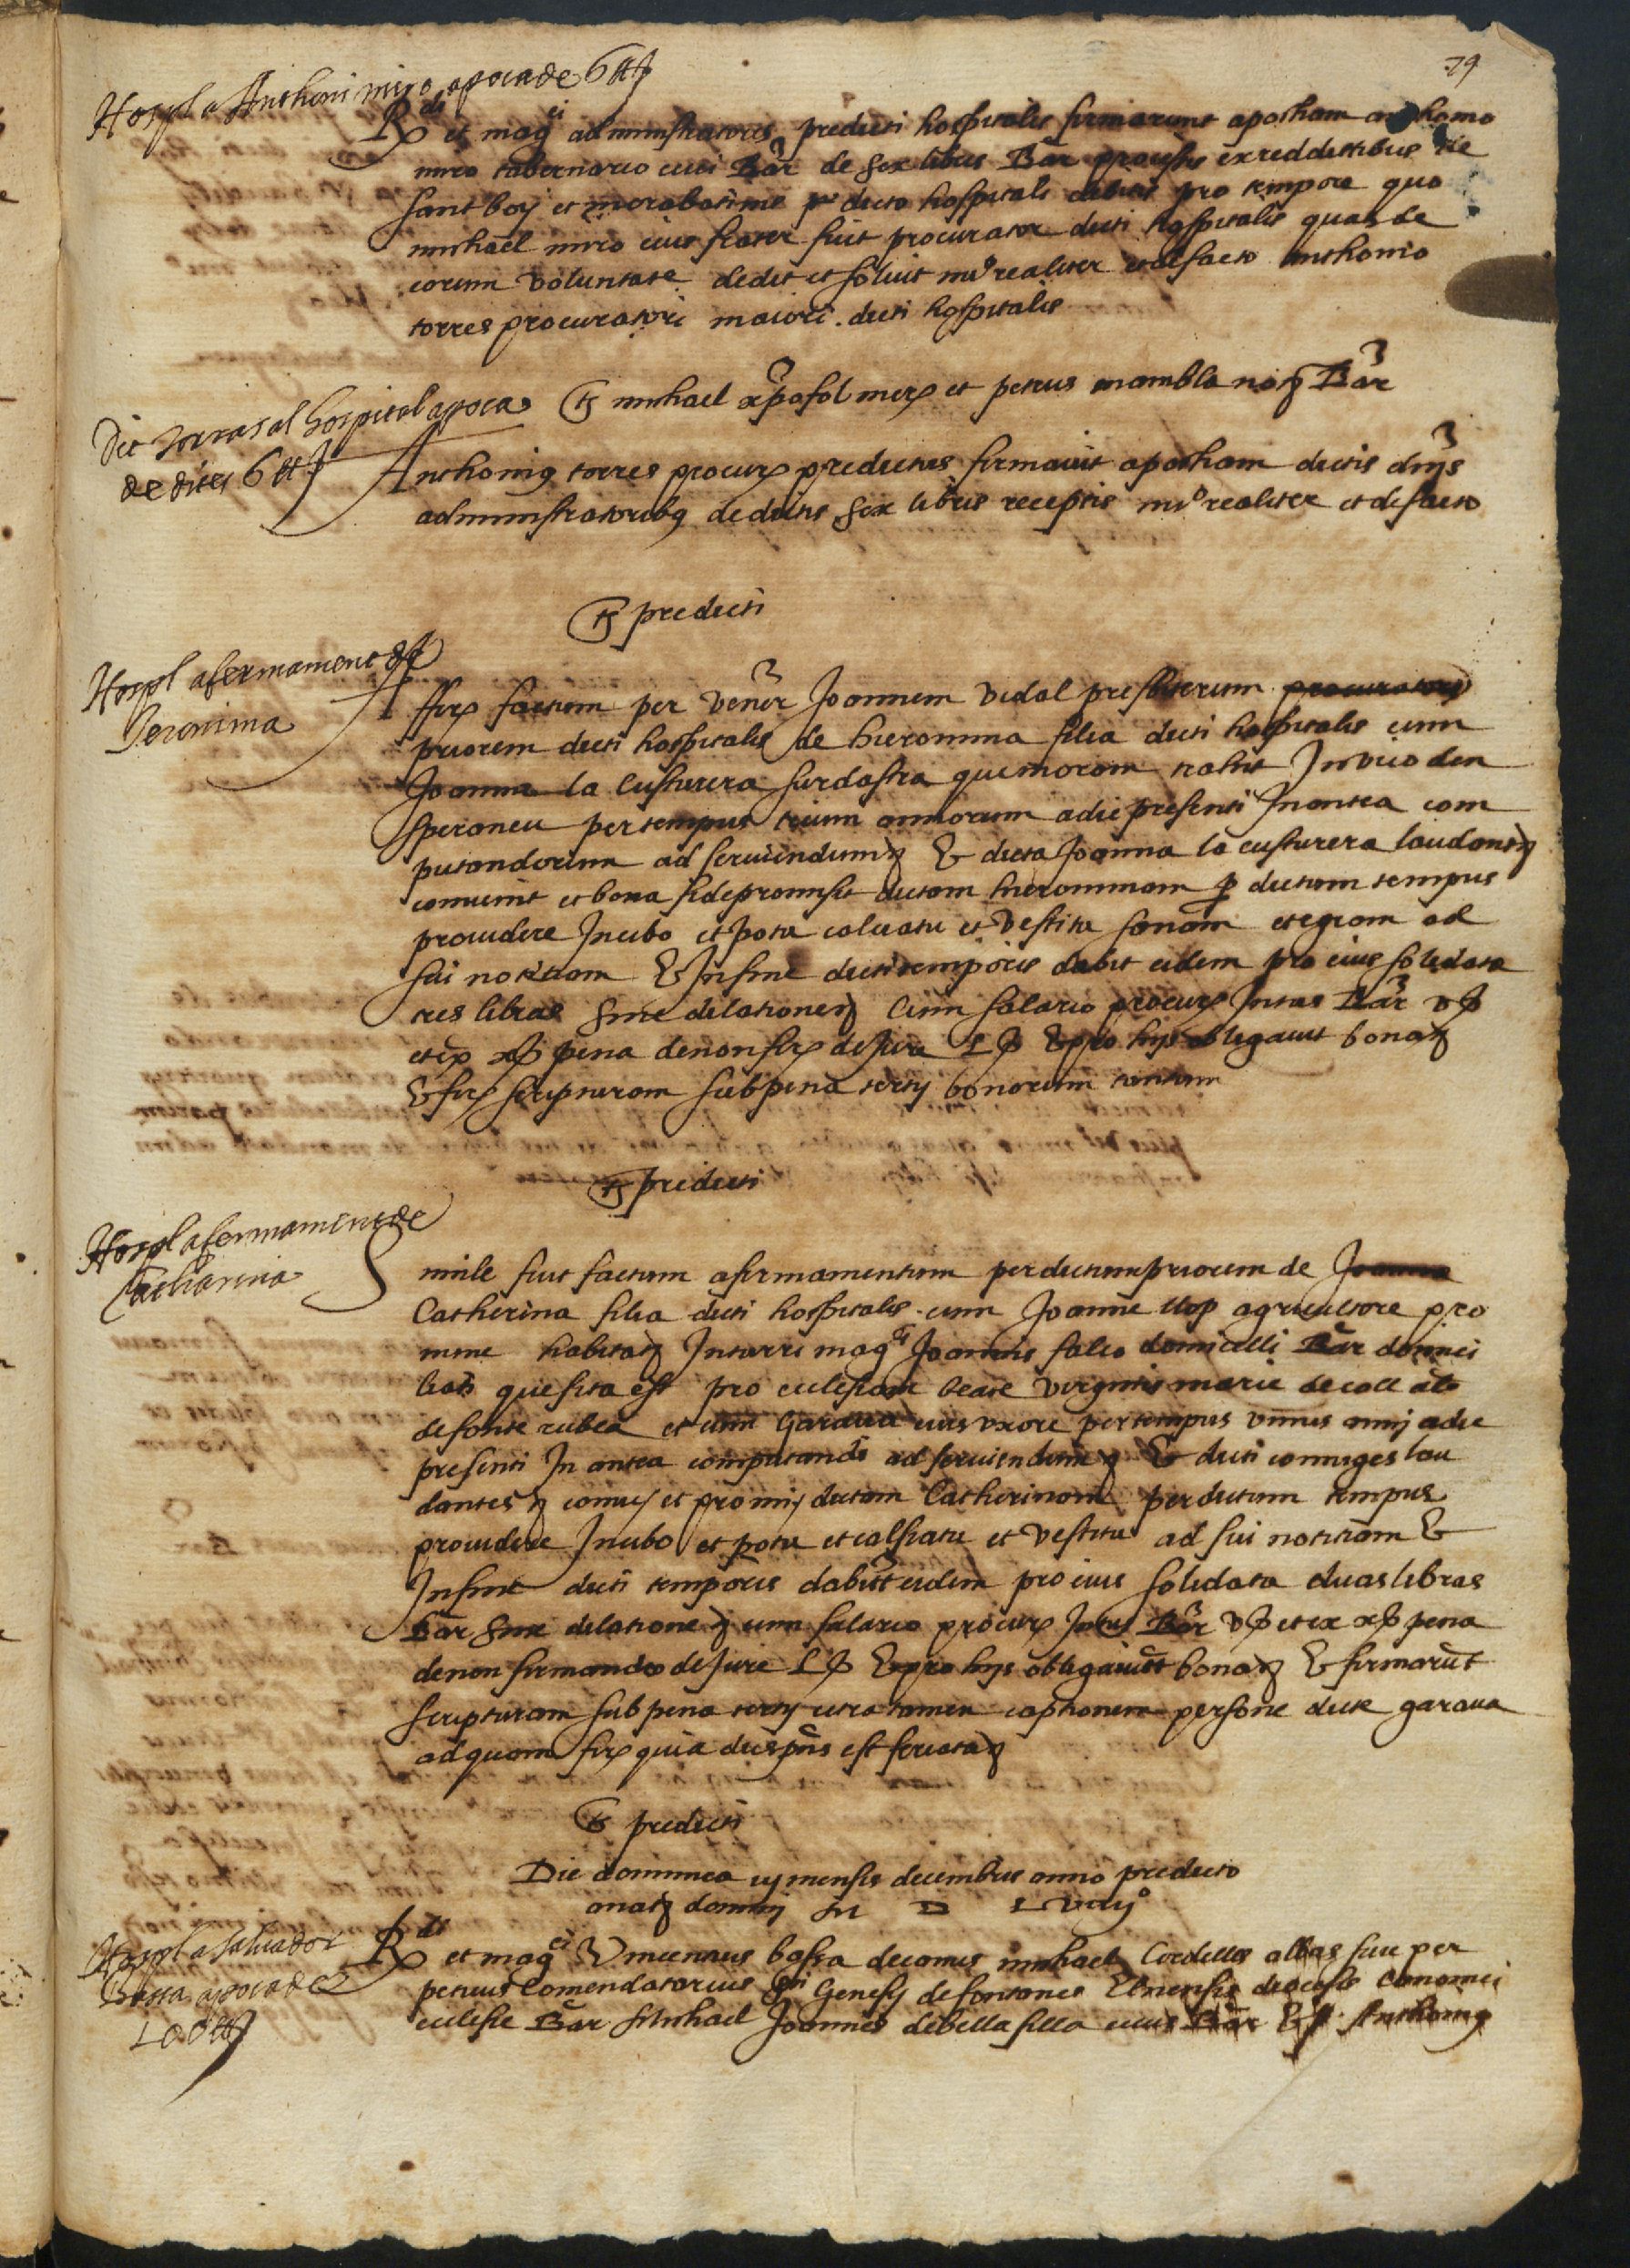 79
Hospl a Anthoni miro apoca de 6 ℔
Rdi et magci administratores predicti hospitalis firmarunt apocham anthonio
miro tabernario civi Bar de sex libris Bar processis ex redditibus de
sant boy et dicto hospitali debitis pro tempore quo
michael miro eius frater fuit procurator dicti hospitalis quas de
eorum voluntate dedit et soluit nuo realiter et de facto anthonio
torres procuratori maiori dicti hospitalis
Ts michael xpofol merx et petrus mambla notz Bar
Dit torras al hospital apoca
de dites 6 ℔
Anthonig torres procurx predictus firmauit apocham dictis dnis
administratoribg de dictis sex libris receptis nuo realiter et de facto
Ts predicti
Hospl afermament de
Jeronima
ffirx factum per Vener Joannem Vidal presbiterum
priorem dicti hospitalis de hieronima filia dicti hospitalis cum
Joanna la Custurera surdastra que moram trahit In vico den
speroneu per tempus trium annorum a die presenti In antea com
putandorum ad seruiendum & dicta Joanna la custurera laudans
conuenit et bona fide promisit dictam hieronimam p dictum tempus
prouidere In cibo et potu calciatu et Vestitu sanam et egram ad
sui notitiam & In fine dicti temporis dabit eidem pro eius solidata
tres libras sine dilatione Cum salario procurx Intus Bar v
et ex x pena de non firx de Jure & pro his obligauit bona
& firx scripturam sub pena tertij bonorum tantum
Ts predicti
Hospl afermament de
Catharina
Simile fuit factum afirmamentum per dictum priorem de Joanna
Catherina filia dicti hospitalis cum Joanne llop agricultore pro
nunc habitat In turri magci Joannis falco domicelli Bar domici
liati que sita est pro ecclesiam beate virginis marie de coll als
de fonte rubea et cum Garaua eius vxore per tempus vnius anni a die
presenti In antea computandi ad seruiendum & dicti coniuges lau
dantes conue et promi dictam Catherinam per dictum tempus
prouidere In cibo et potu et calsiatu et vestitu ad sui notitiam &
In fine dicti temporis dabunt eidem pro eius solidata duas libras
Bar sine dilatione cum salario procurx Intus Bar v et ex x pena
de non firmando de Jure & pro his obligauint bona & firmarunt
scripturam sub pena tertij citra tamen captionem persone dicte garaua
ad quam firx quia dies pns est feriata
Ts predicti
Die dominica iij mensis decembris anno predicto
a natz domini M D L viijo
Hospl a saluador
Bassa apoca de
100 ℔
Rdi et magci Vincentius bassa decanus michael Cordelles abbas siue per
petuus Comendatarius Sti Genesij de fontanes Elnensis diocesis Canonici
ecclesie Bar Michael Joannes de bella filla ciuis Bar & Anthonig